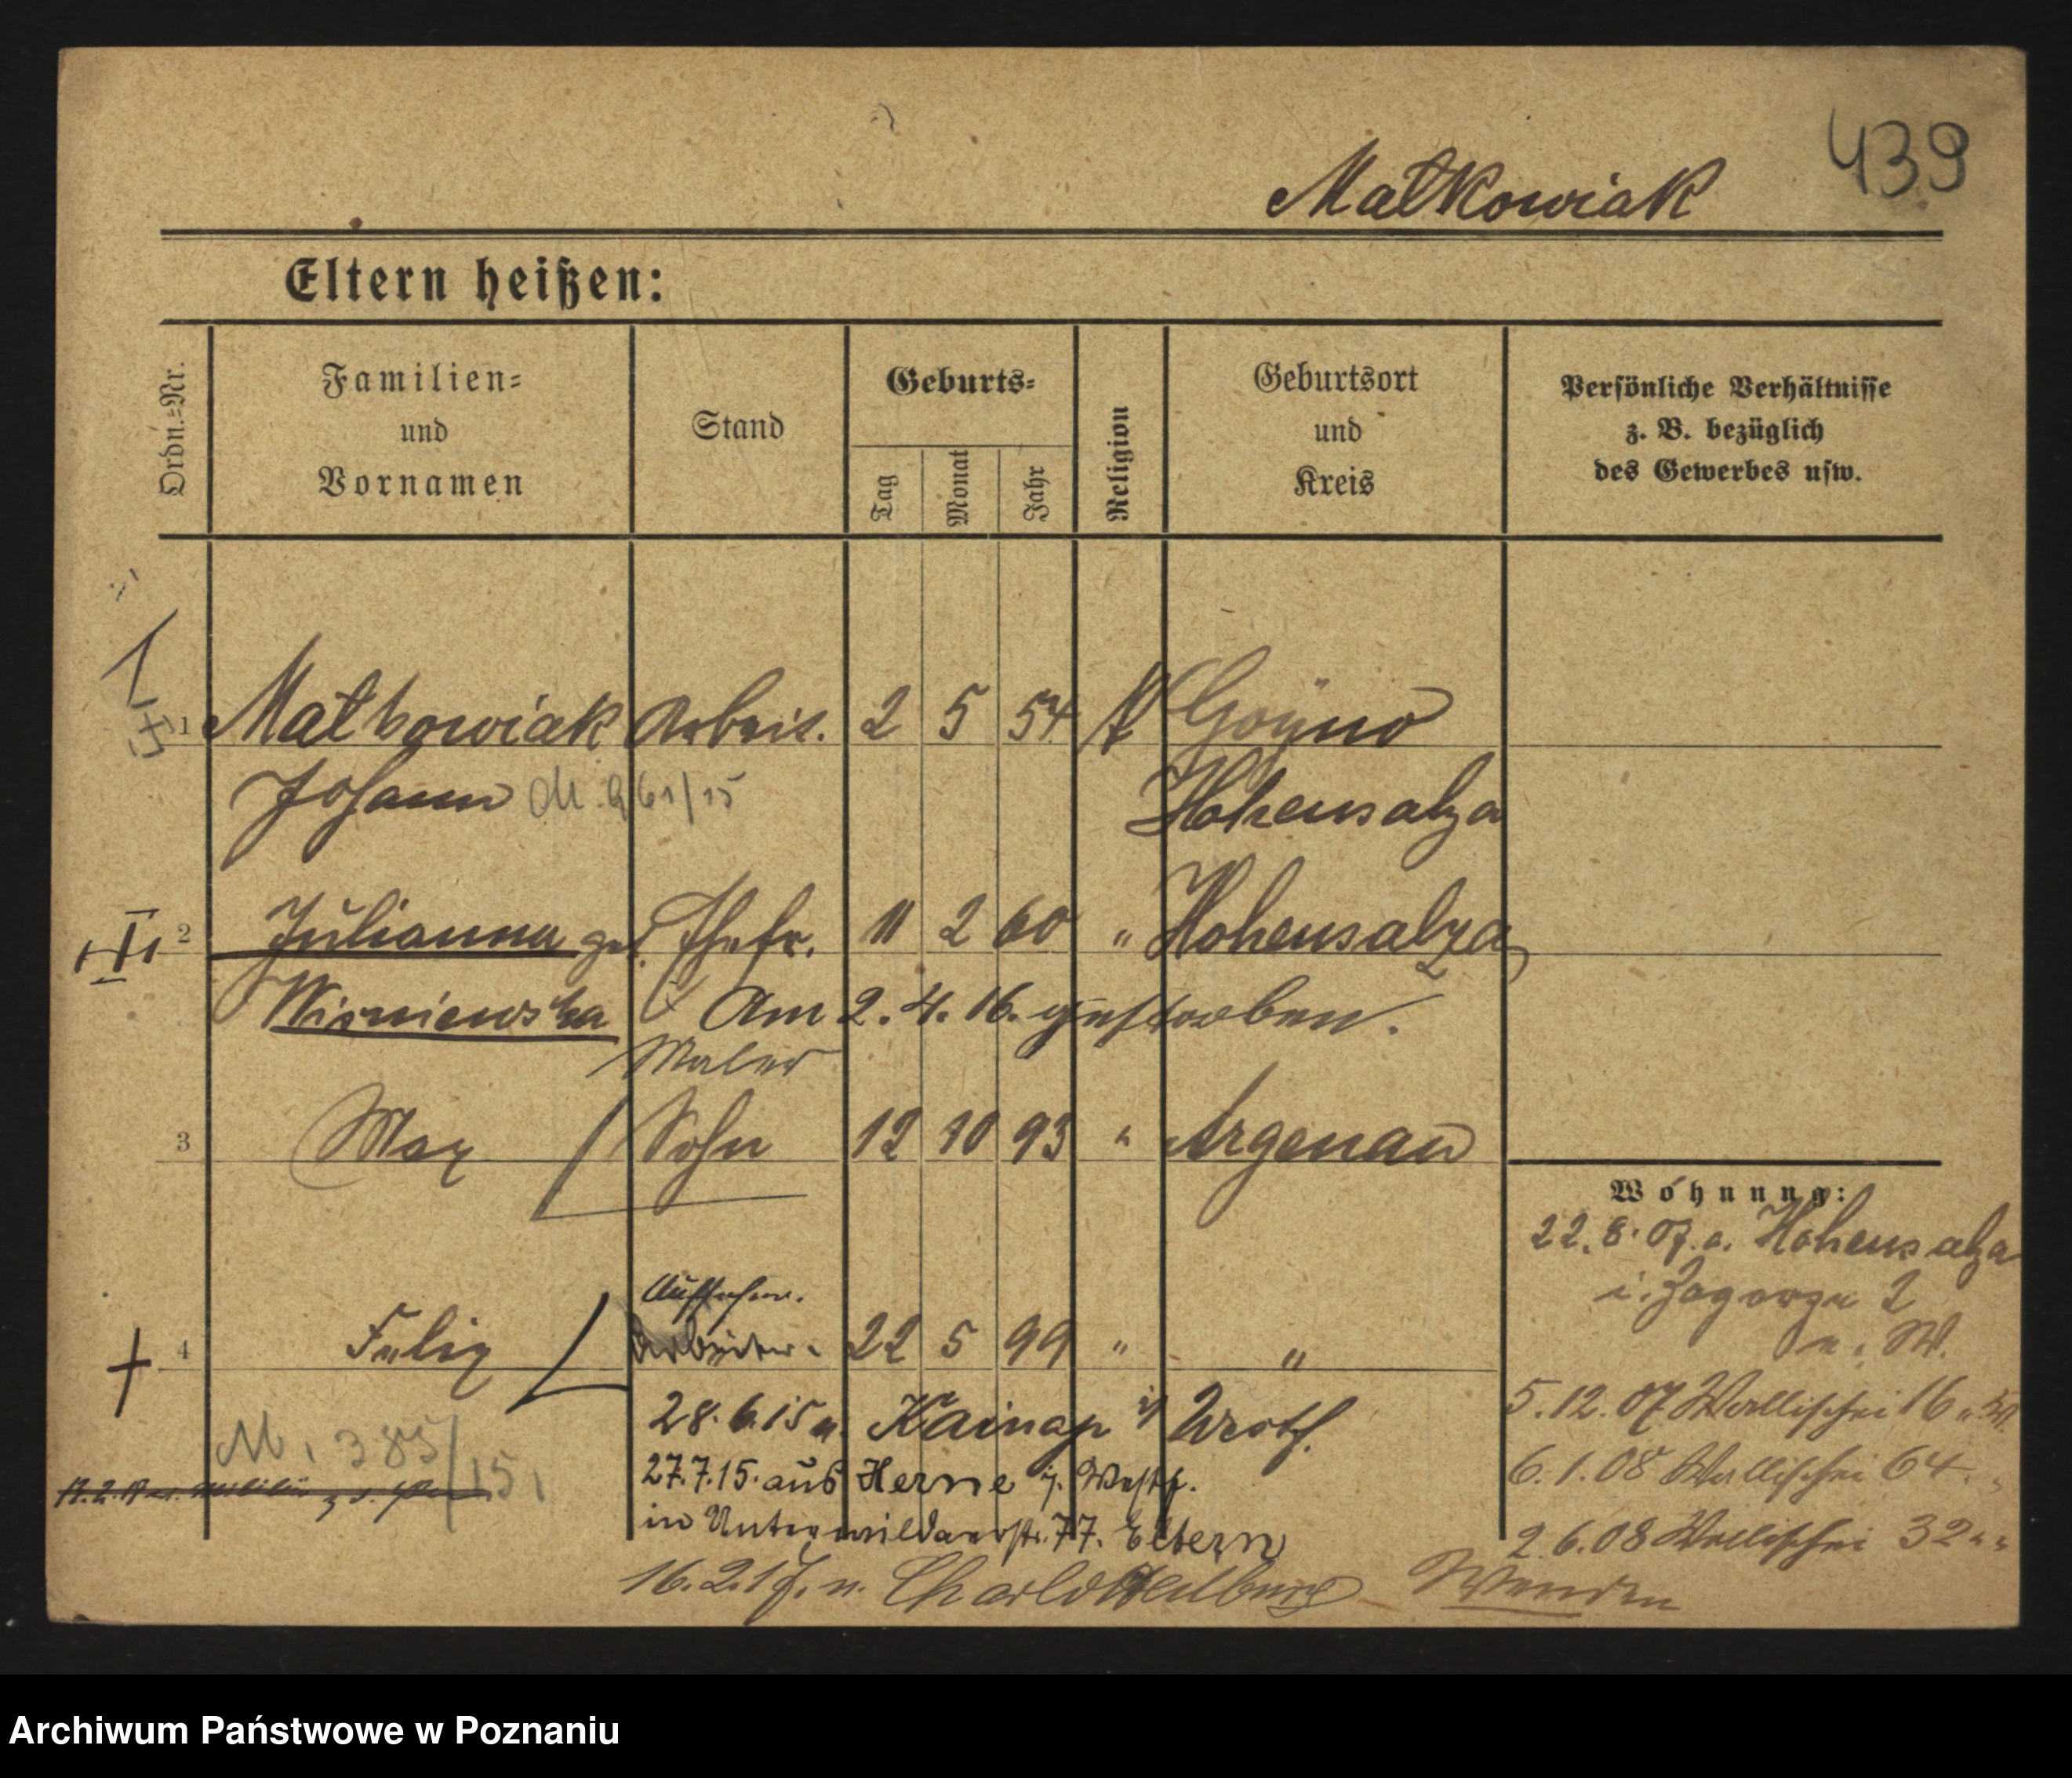 439
Matkowiak
Eltern heißen:
Ordn.-Nr.
Familien-
und
Vornamen
Stand
Geburts-
Tag
Monat
Jahr
Religion
Geburtsort
und
Kreis
Persönliche Verhältnisse
z. B. bezüglich
des Gewerbes usw.
1 Matkowiak Arbeit. 2 5 54 K
Johann 61/15 Hohensalza
2 Julianna geb. Ehefr. 11 2 60 " Hohensalza
Wisniewska Am 2. 4. 16. gestorben.
Maler
3 Max Sohn 12 10 93 " Argenau
Wohnung:
22. 8. 07. a. Hohensalza
i. Zagorze 2
b. u. W.
4 Felix Arbeiter 22 5 99 " "
5. 12. 07 Wallischei 16 " "
28. 6. 15 n. i/ Westf.
M. 385/15
27. 7. 15. aus Herne i. Westf.
6. 1. 08 Wallischei 64 "
in Unterwildaerstr. 77. Eltern
2. 6. 08 Wallischei 32 " "
16. 2. 17. n. Charlottenburg
Wenden
Archiwum Państwowe w Poznaniu